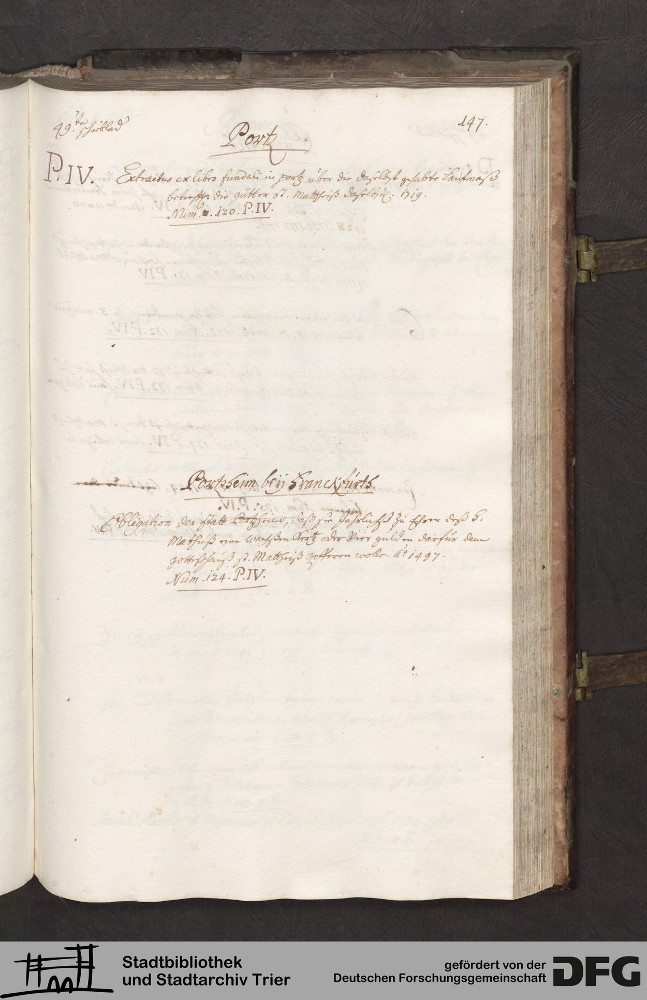 147.
49te schublad
Portz
P.IV. Extractus ex libro fundali in portz über die daselbst gehabte Landmaß
betreffs die gütter St. Matthiß daselbst. 1719.
Num. 120. P.IV.
Portzheim bey Franckfurth
Obligation der statt Portzheim, daß sie Jahrlichs zu Ehren deß H.
Mathiß eine wachßen Kertz oder Vier gulden darfür dem
gottshauß St. Matthiß opfferen wolle. Ao 1497.
Num. 124. P.IV.
Stadtbibliothek
und Stadtarchiv Trier
gefördert von der
Deutschen Forschungsgemeinschaft
DFG